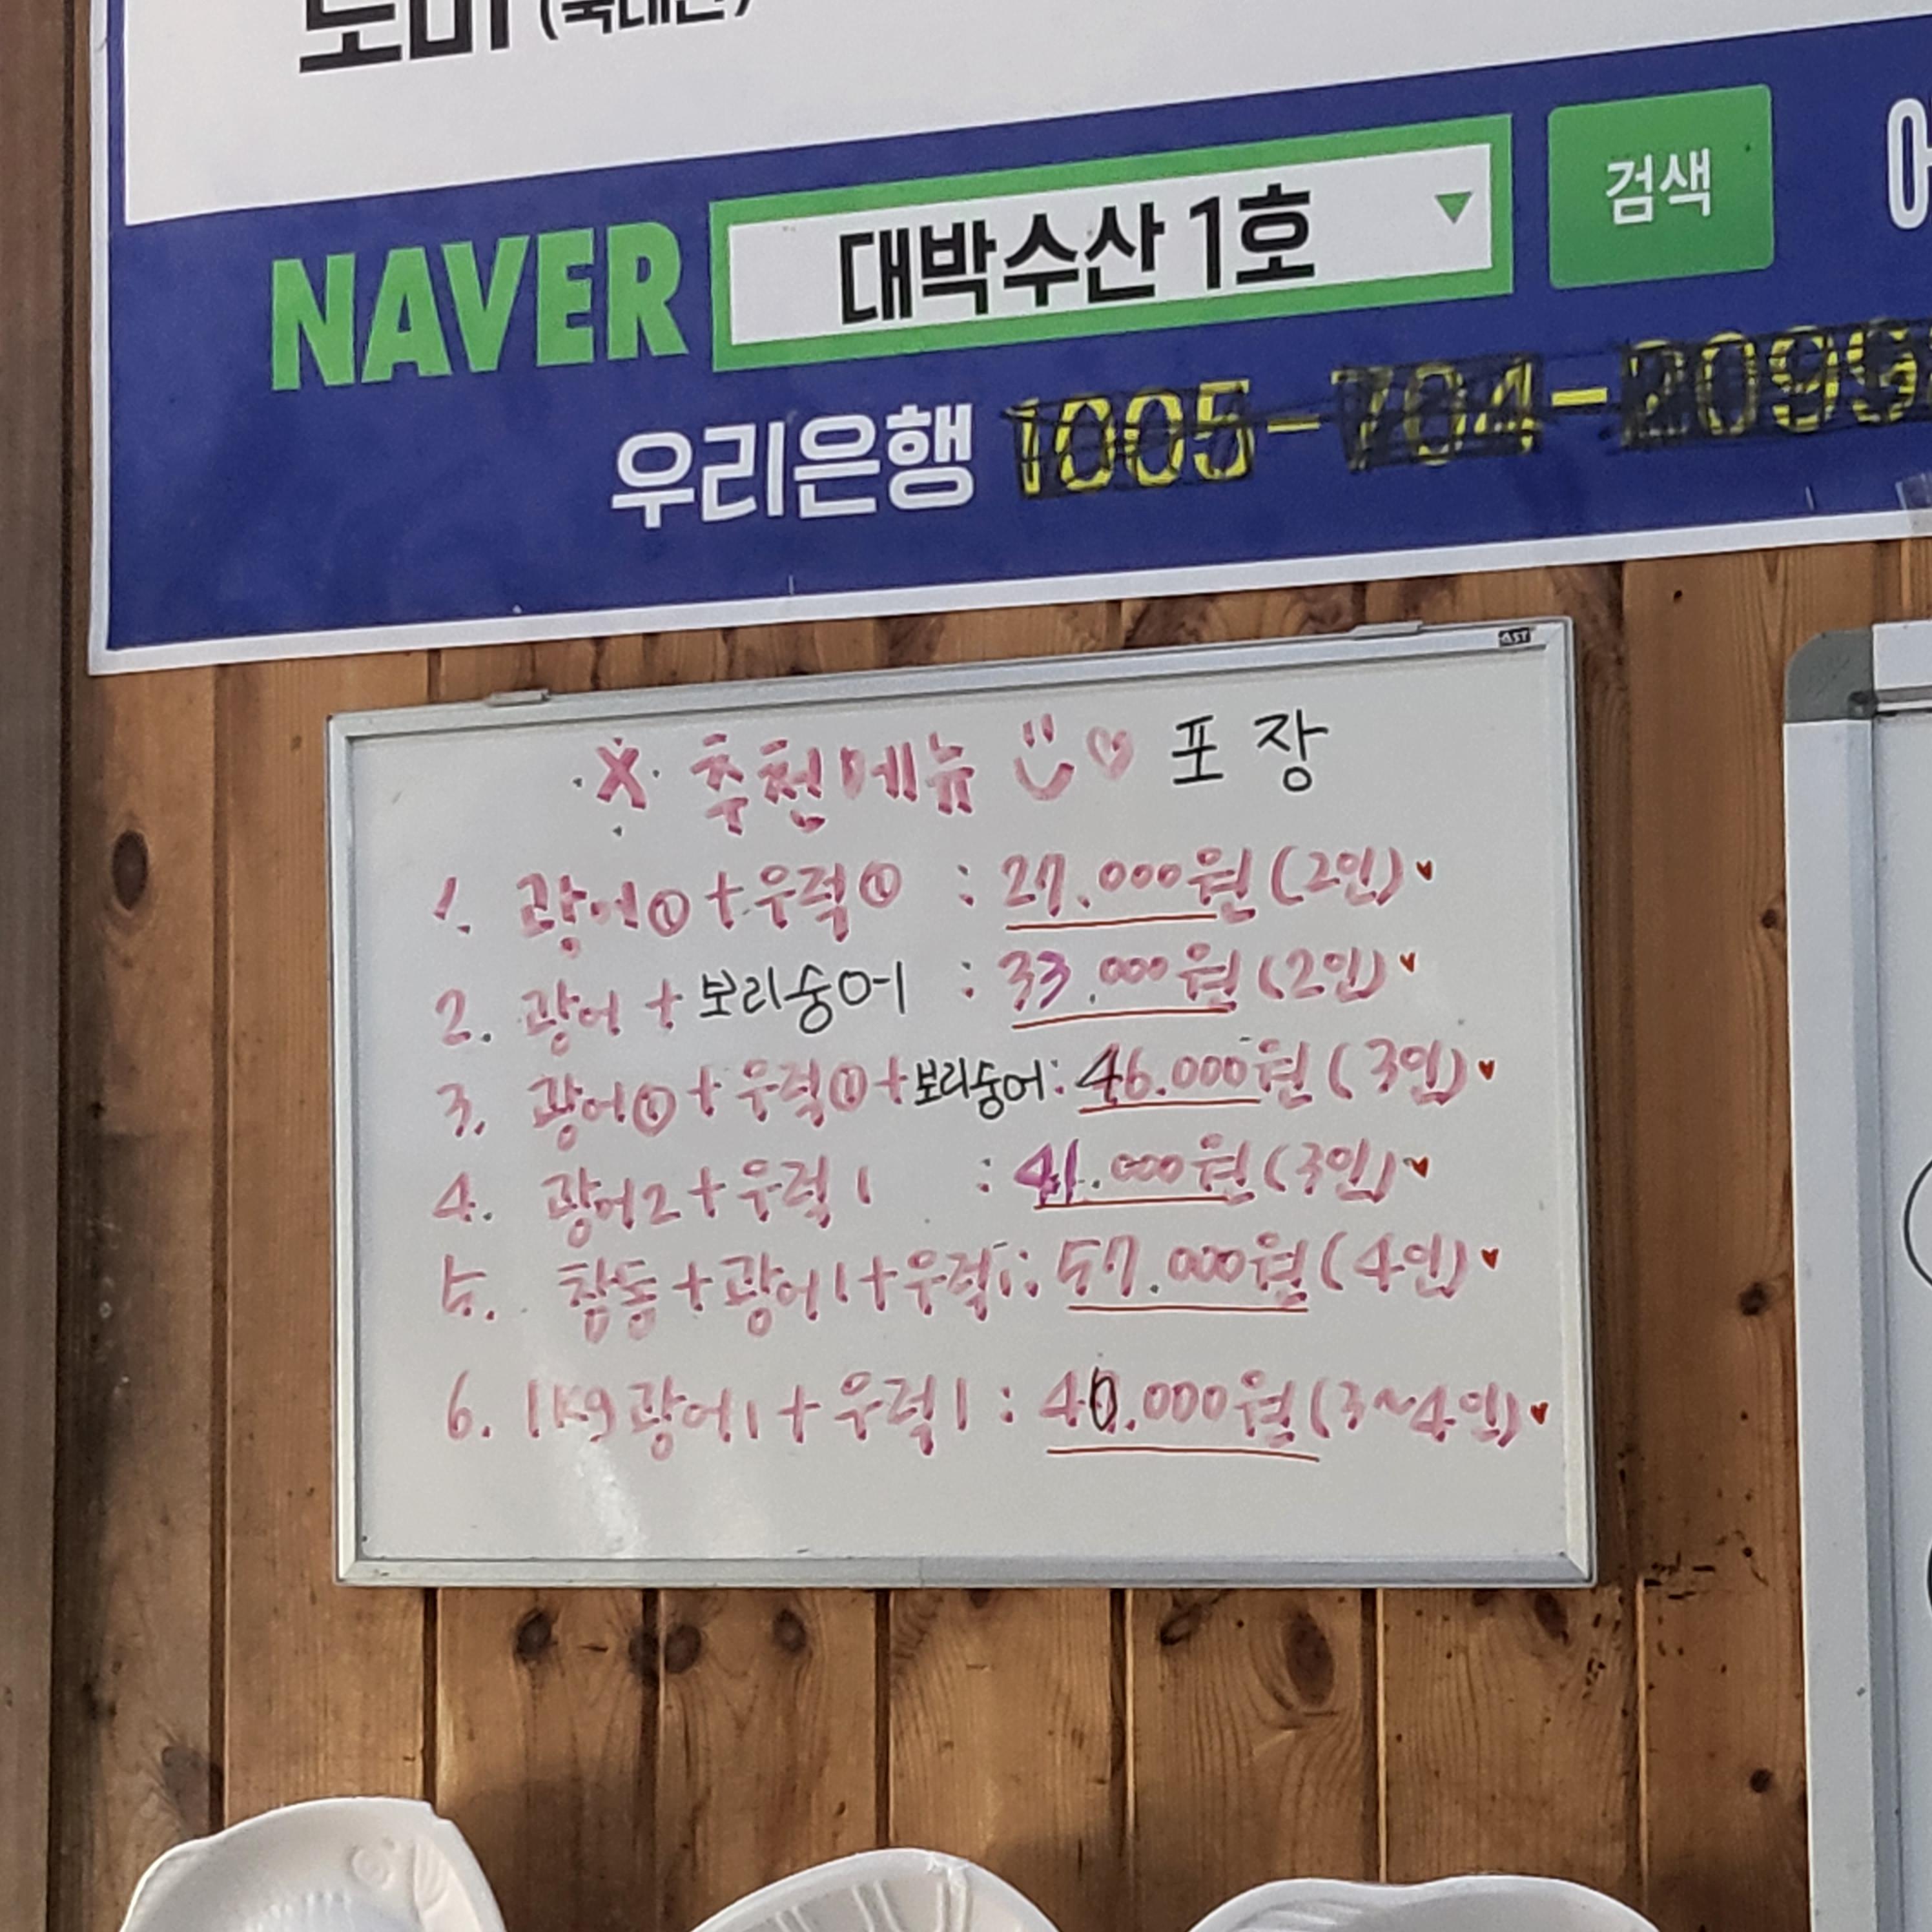 NAVER 대박수산 1호 검색
우리은행
※ 추천메뉴 포장
1. 광어① + 우럭① : 27.000원 (2인)
2. 광어 + 보리숭어 : 33.000원 (2인)
3. 광어① + 우럭① + 보리숭어 : 46.000원 (3인)
4. 광어2 + 우럭1 : 41.000원 (3인)
5. 참돔 + 광어1 + 우럭1 : 57.000원 (4인)
6. 1kg광어1 + 우럭1 : 40.000원 (3~4인)